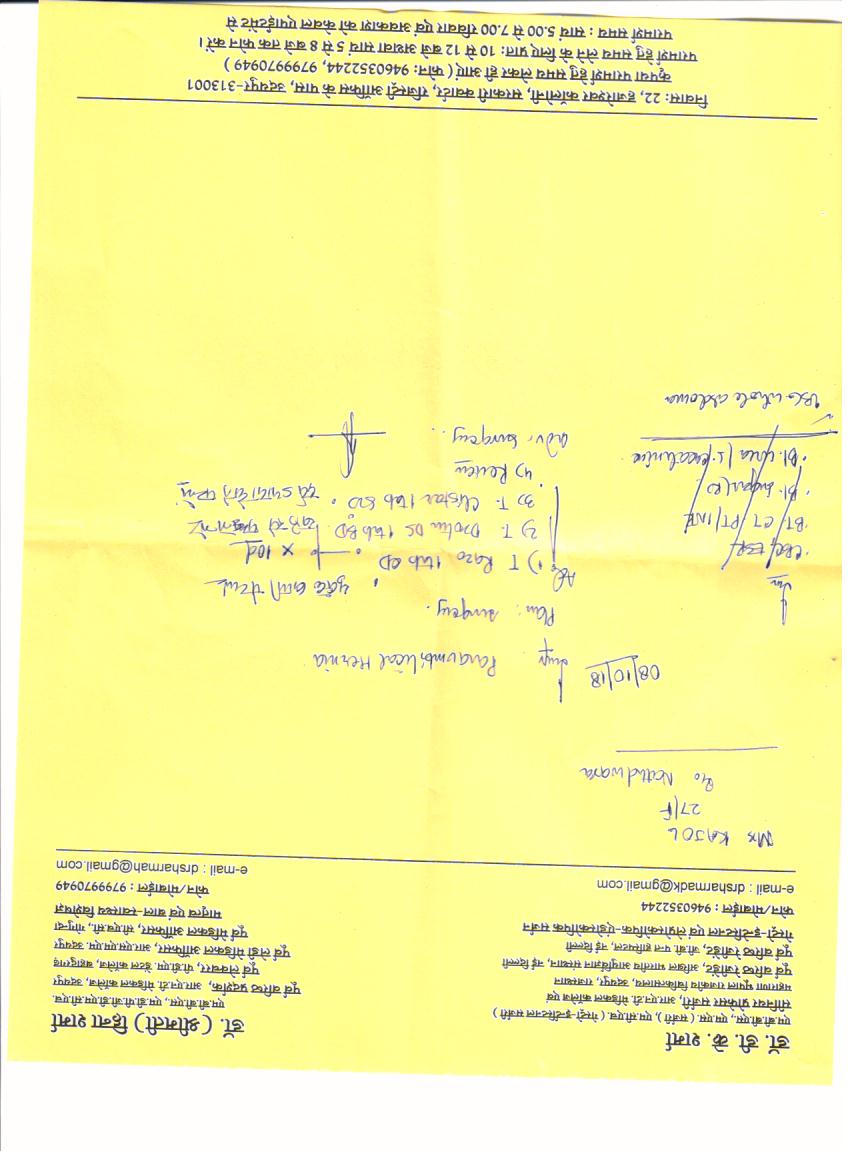 डॉ. डी. के. शर्मा
एम.बी.बी.एस., एम.एस. (सर्जरी), एम.सी.एच. (गेस्ट्रो-इन्टेस्टिनल सर्जरी)
सीनियर प्रोफेसर सर्जरी, आर.एन.टी. मेडिकल कॉलेज एवं
महाराणा भूपाल राजकीय चिकित्सालय, उदयपुर, राजस्थान
पूर्व वरिष्ठ रेजीडेंट, अखिल भारतीय आयुर्विज्ञान संस्थान, नई दिल्ली
पूर्व वरिष्ठ रेजीडेंट, जी.बी. पन्त हास्पिटल, नई दिल्ली
गेस्ट्रो-इन्टेस्टिनल एवं लेप्रोस्कोपिक-एंडोस्कोपिक सर्जन
फोन/मोबाईल : 9460352244
e-mail : drsharmadk@gmail.com
डॉ. (श्रीमती) हिना शर्मा
एम.बी.बी.एस., एम.डी.पी.जी.डी.एम.सी.एच.
पूर्व वरिष्ठ प्रदर्शक, आर.एन.टी. मेडिकल कॉलेज, उदयपुर
पूर्व लेक्चरर, पी.डी.एम. डेंटल कॉलेज, बहादुरगढ़
पूर्व लेडी मेडिकल ऑफिसर, आर.एस.एम.एम. उदयपुर
पूर्व मेडिकल ऑफिसर, सी.एच.सी. गोगुन्दा
मातृत्व एवं बाल-स्वास्थ्य विशेषज्ञ
फोन/मोबाईल : 9799970949
e-mail : drsharmah@gmail.com
Mrs KAJOL
27/F
R/o Nathdwara
08/10/18
Imp Paraumbilical Hernia
Plan: surgery.
Inv
CBC/ESR
BT CT PT/INR
Bl. sugar (R)
Bl. Urea / S. creatinine
USG whole abdomen
Adv
1) T Razo 1tab OD
2) T. Drotin DS 1tab BD
3) T. Clistar 1tab BD
x 10d
4) Review
adv. surgery.
निवास: 22, हजारेश्वर कॉलोनी, सरकारी क्वार्टर, रजिस्ट्री ऑफिस के पास, उदयपुर-313001
कृपया परामर्श हेतु समय लेकर ही आएं (फोन: 9460352244, 9799970949)
परामर्श हेतु समय लेने के लिए प्रातः 10 से 12 बजे अथवा सायं 5 से 8 बजे तक फोन करें।
परामर्श समय : सायं 5.00 से 7.00 रविवार एवं अवकाश को केवल एपाईंटमेंट से